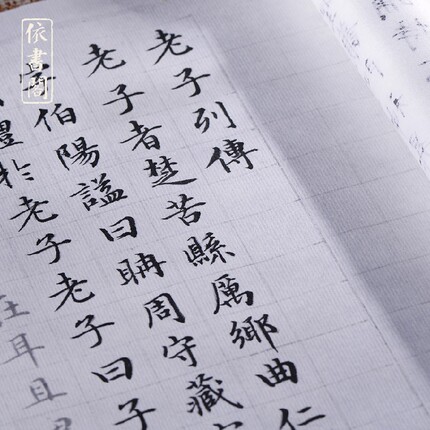 依書閣
老子列傳
老子者楚苦縣厲鄉曲仁
字伯陽諡曰聃周守藏
禮於老子老子曰子
在耳且